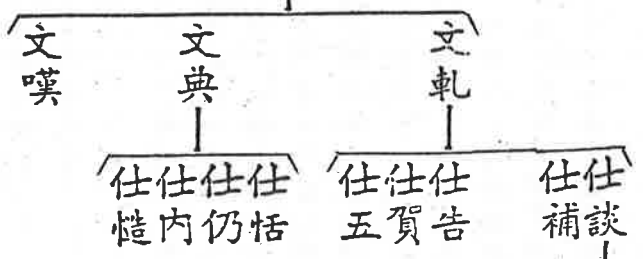 文軋
文典
文嘆
仕談
仕補
仕告
仕賀
仕五
仕恬
仕仍
仕内
仕慥